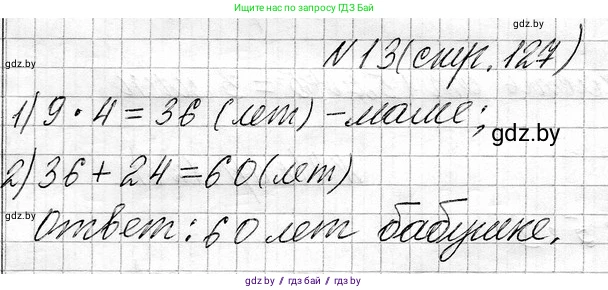 Ищите нас по запросу ГДЗ Бай
gdz.by
N 13 (стр. 127)
1) 9 · 4 = 36 (лет) - маме;
gdz.by
2) 36 + 24 = 60 (лет)
gdz.by
Ответ: 60 лет бабушке.
gdz.by / гдз бай / gdz.by